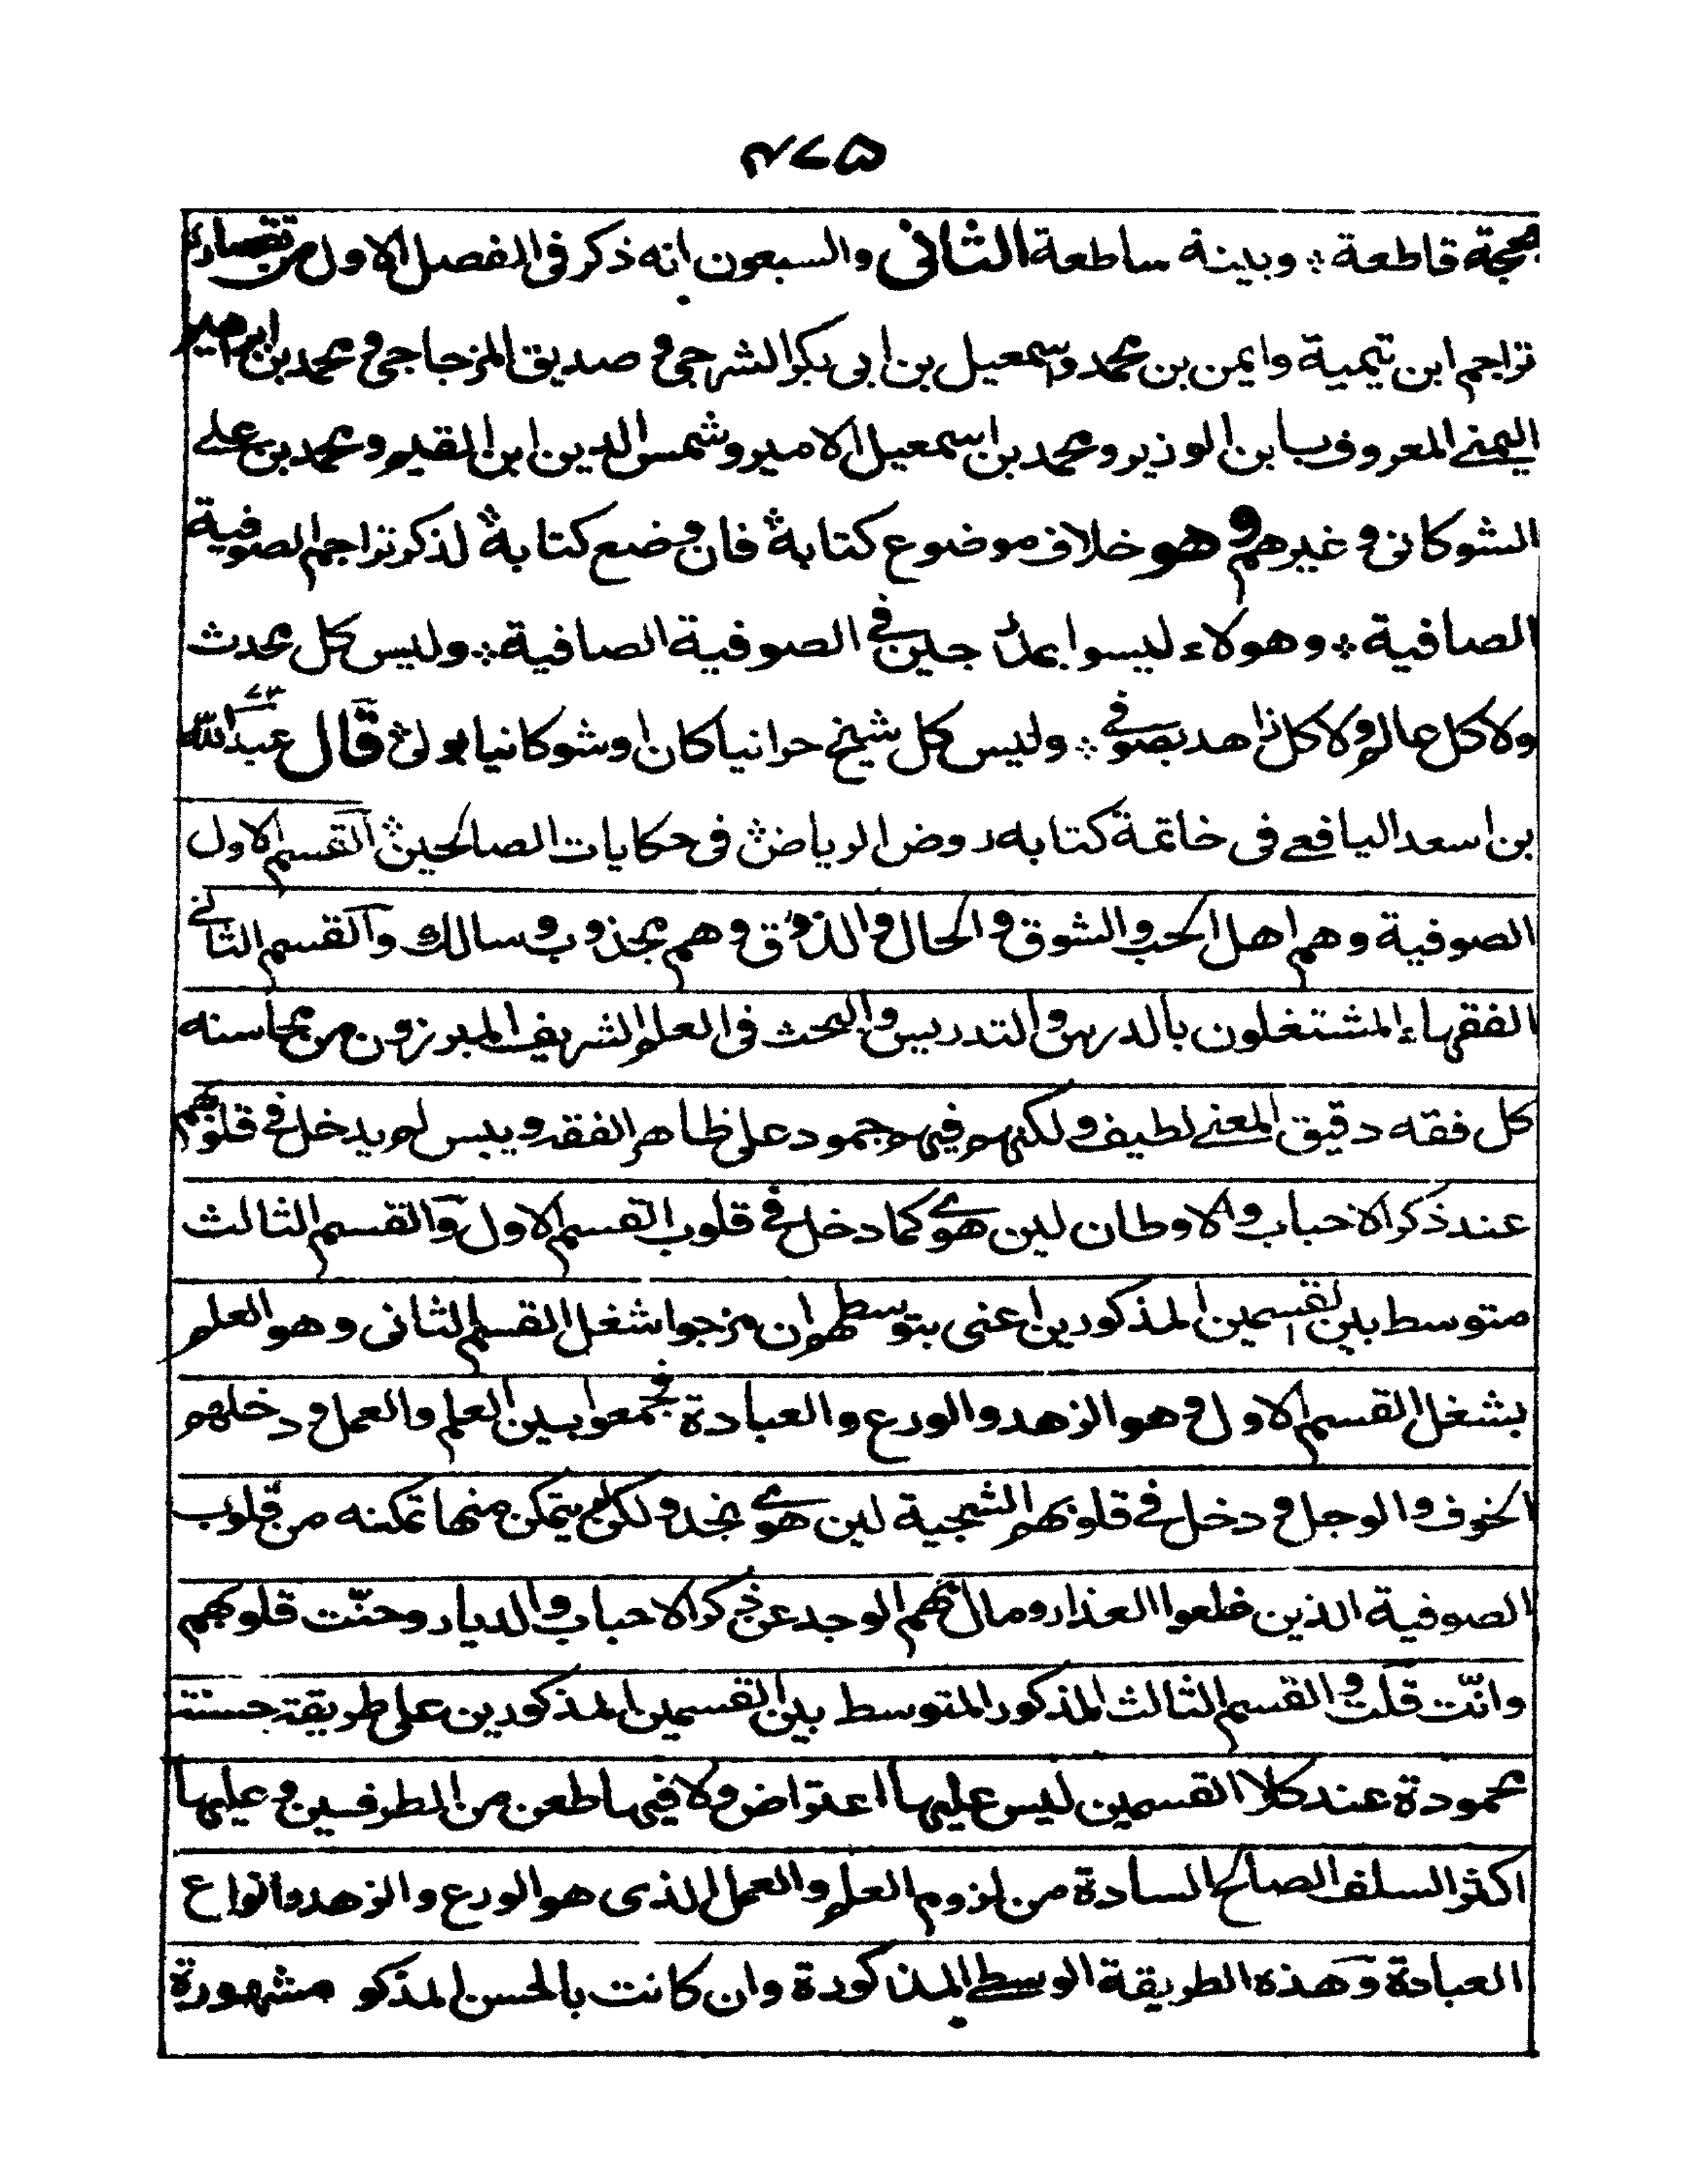 ٣٧٥
بحجة قاطعة ؞ وبينة ساطعة الثانى والسبعون انه ذكر فى الفصل الاول من تقصاره
تراجم ابن تيمية وايمن بن محمد واسمعيل بن ابى بكر الشرجى و صديق المزجاجى و محمد بن ابراهيم
اليمنے المعروف بابن الوزير ومحمد بن اسمعيل الامير وشمس الدين ابن القيم ومحمد بن علے
الشوكانى و غيرهم و هو خلاف موضوع كتابه فان وضع كتابه لذكر تراجم الصوفية
الصافية ؞ وهولاء ليسوا بمدرجين فے الصوفية الصافية ؞ وليس كل محدث
ولا كل عالم ولا كل زاهد بصوفى ؞ وليس كل شيخ حرانيا كان او شوكانيا بولى قال عبد الله
بن اسعد اليافعے فى خاتمة كتابه روض الرياض فى حكايات الصالحين القسم الاول
الصوفية وهم اهل الحب والشوق و الحال والذوق و هم مجذوب و سالك والقسم الثانے
الفقهاء المشتغلون بالدرس والتدريس والبحث فى العلم الشريف المبرزون من محاسنه
كل فقه دقيق المعنے لطيف و لكنهم فيهم جمود على ظاهر الفقه و يبس لم يدخل فے قلوبهم
عند ذكر الاحباب والاوطان لين هوے كما دخل فے قلوب القسم الاول والقسم الثالث
متوسط بين القسمين المذكورين اعنى بتوسطهم ان مزجوا شغل القسم الثانى وهو العلم
بشغل القسم الاول و هو الزهد والورع والعبادة فجمعوا بين العلم والعمل و دخلهم
الخوف والوجل و دخل فے قلوبهم الشجية لين هوے نجد و لكن لم يتمكن منها تمكنه من قلوب
الصوفية الذين خلعوا العذار ومال بهم الوجد عن ذكر الاحباب والديار وحنّت قلوبهم
وانّت قلت والقسم الثالث المذكور المتوسط بين القسمين المذكورين على طريقة حسنة
محمودة عند كلا القسمين ليس عليها اعتراض ولا فيها طعن من الطرفين و عليها
اكثر السلف الصالح السادة من لزوم العلم والعمل الذى هو الورع والزهد وانواع
العبادة وهذه الطريقة الوسطے المذكورة وان كانت بالحسن المذكو مشهورة